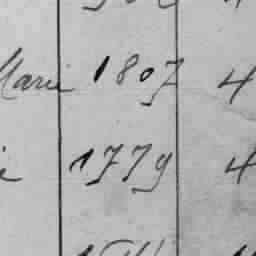 Marie 1807 4
1779 4